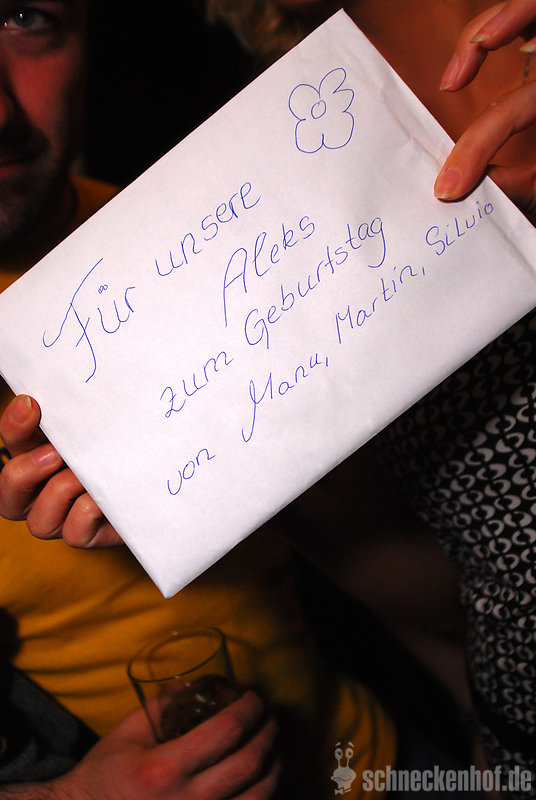 Für unsere
Aleks
zum Geburtstag
von Manu, Martin, Silvio
schneckenhof.de